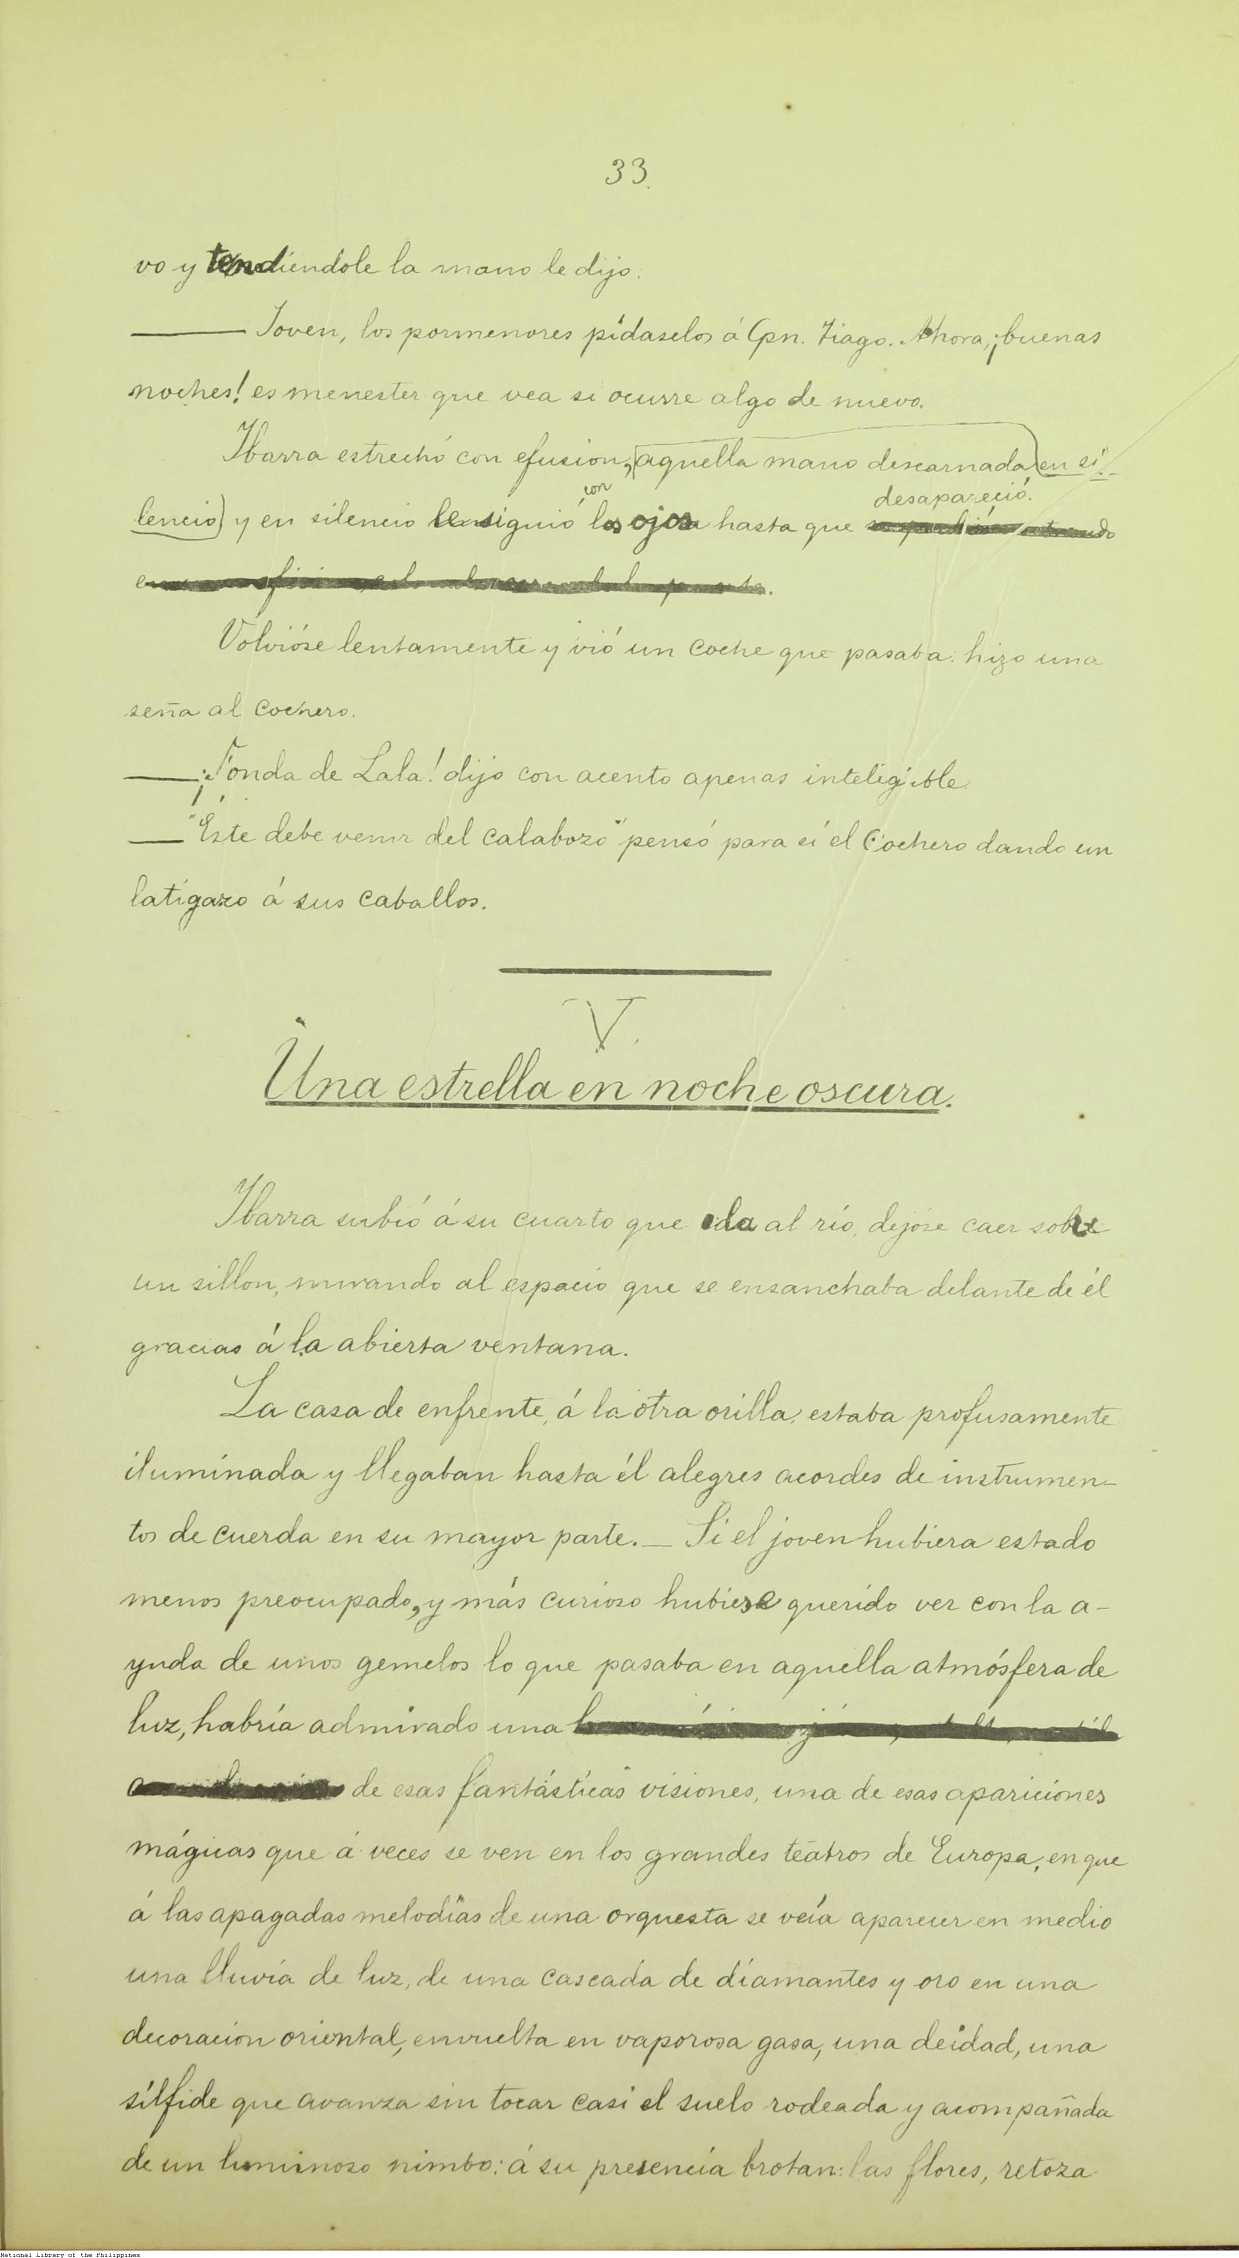 33.
vo y tendiendole la mano le dijo:
—— Joven, los pormenores pídaselos á Cpn. Tiago. Ahora, ¡buenas
noches! es menester que vea si ocurre algo de nuevo.
Ibarra estrechó con efusion, aquella mano descarnada en si-
lencio) y en silencio le siguió con los ojos hasta que desapareció.
Volvióse lentamente y vió un coche que pasaba: hizo una
seña al cochero.
—— ¡Fonda de Lala! dijo con acento apenas inteligible.
—— "Éste debe venir del calabozo" pensó para sí el cochero dando un
latigazo á sus caballos.
V.
Una estrella en noche oscura.
Ibarra subió á su cuarto que da al río, dejóse caer sobre
un sillon, mirando al espacio que se ensanchaba delante de él
gracias á la abierta ventana.
La casa de enfrente, á la otra orilla, estaba profusamente
iluminada y llegaban hasta él alegres acordes de instrumen-
tos de cuerda en su mayor parte. — Si el joven hubiera estado
menos preocupado, y más curioso hubiese querido ver con la a-
yuda de unos gemelos lo que pasaba en aquella atmósfera de
luz, habría admirado una
de esas fantásticas visiones, una de esas apariciones
mágicas que á veces se ven en los grandes teatros de Europa, en que
á las apagadas melodías de una orquesta se veía aparecer en medio
una lluvia de luz, de una cascada de diamantes y oro en una
decoracion oriental, envuelta en vaporosa gasa, una deidad, una
sílfide que avanza sin tocar casi el suelo rodeada y acompañada
de un luminoso nimbo: á su presencia brotan las flores, retoza
National Library of the Philippines